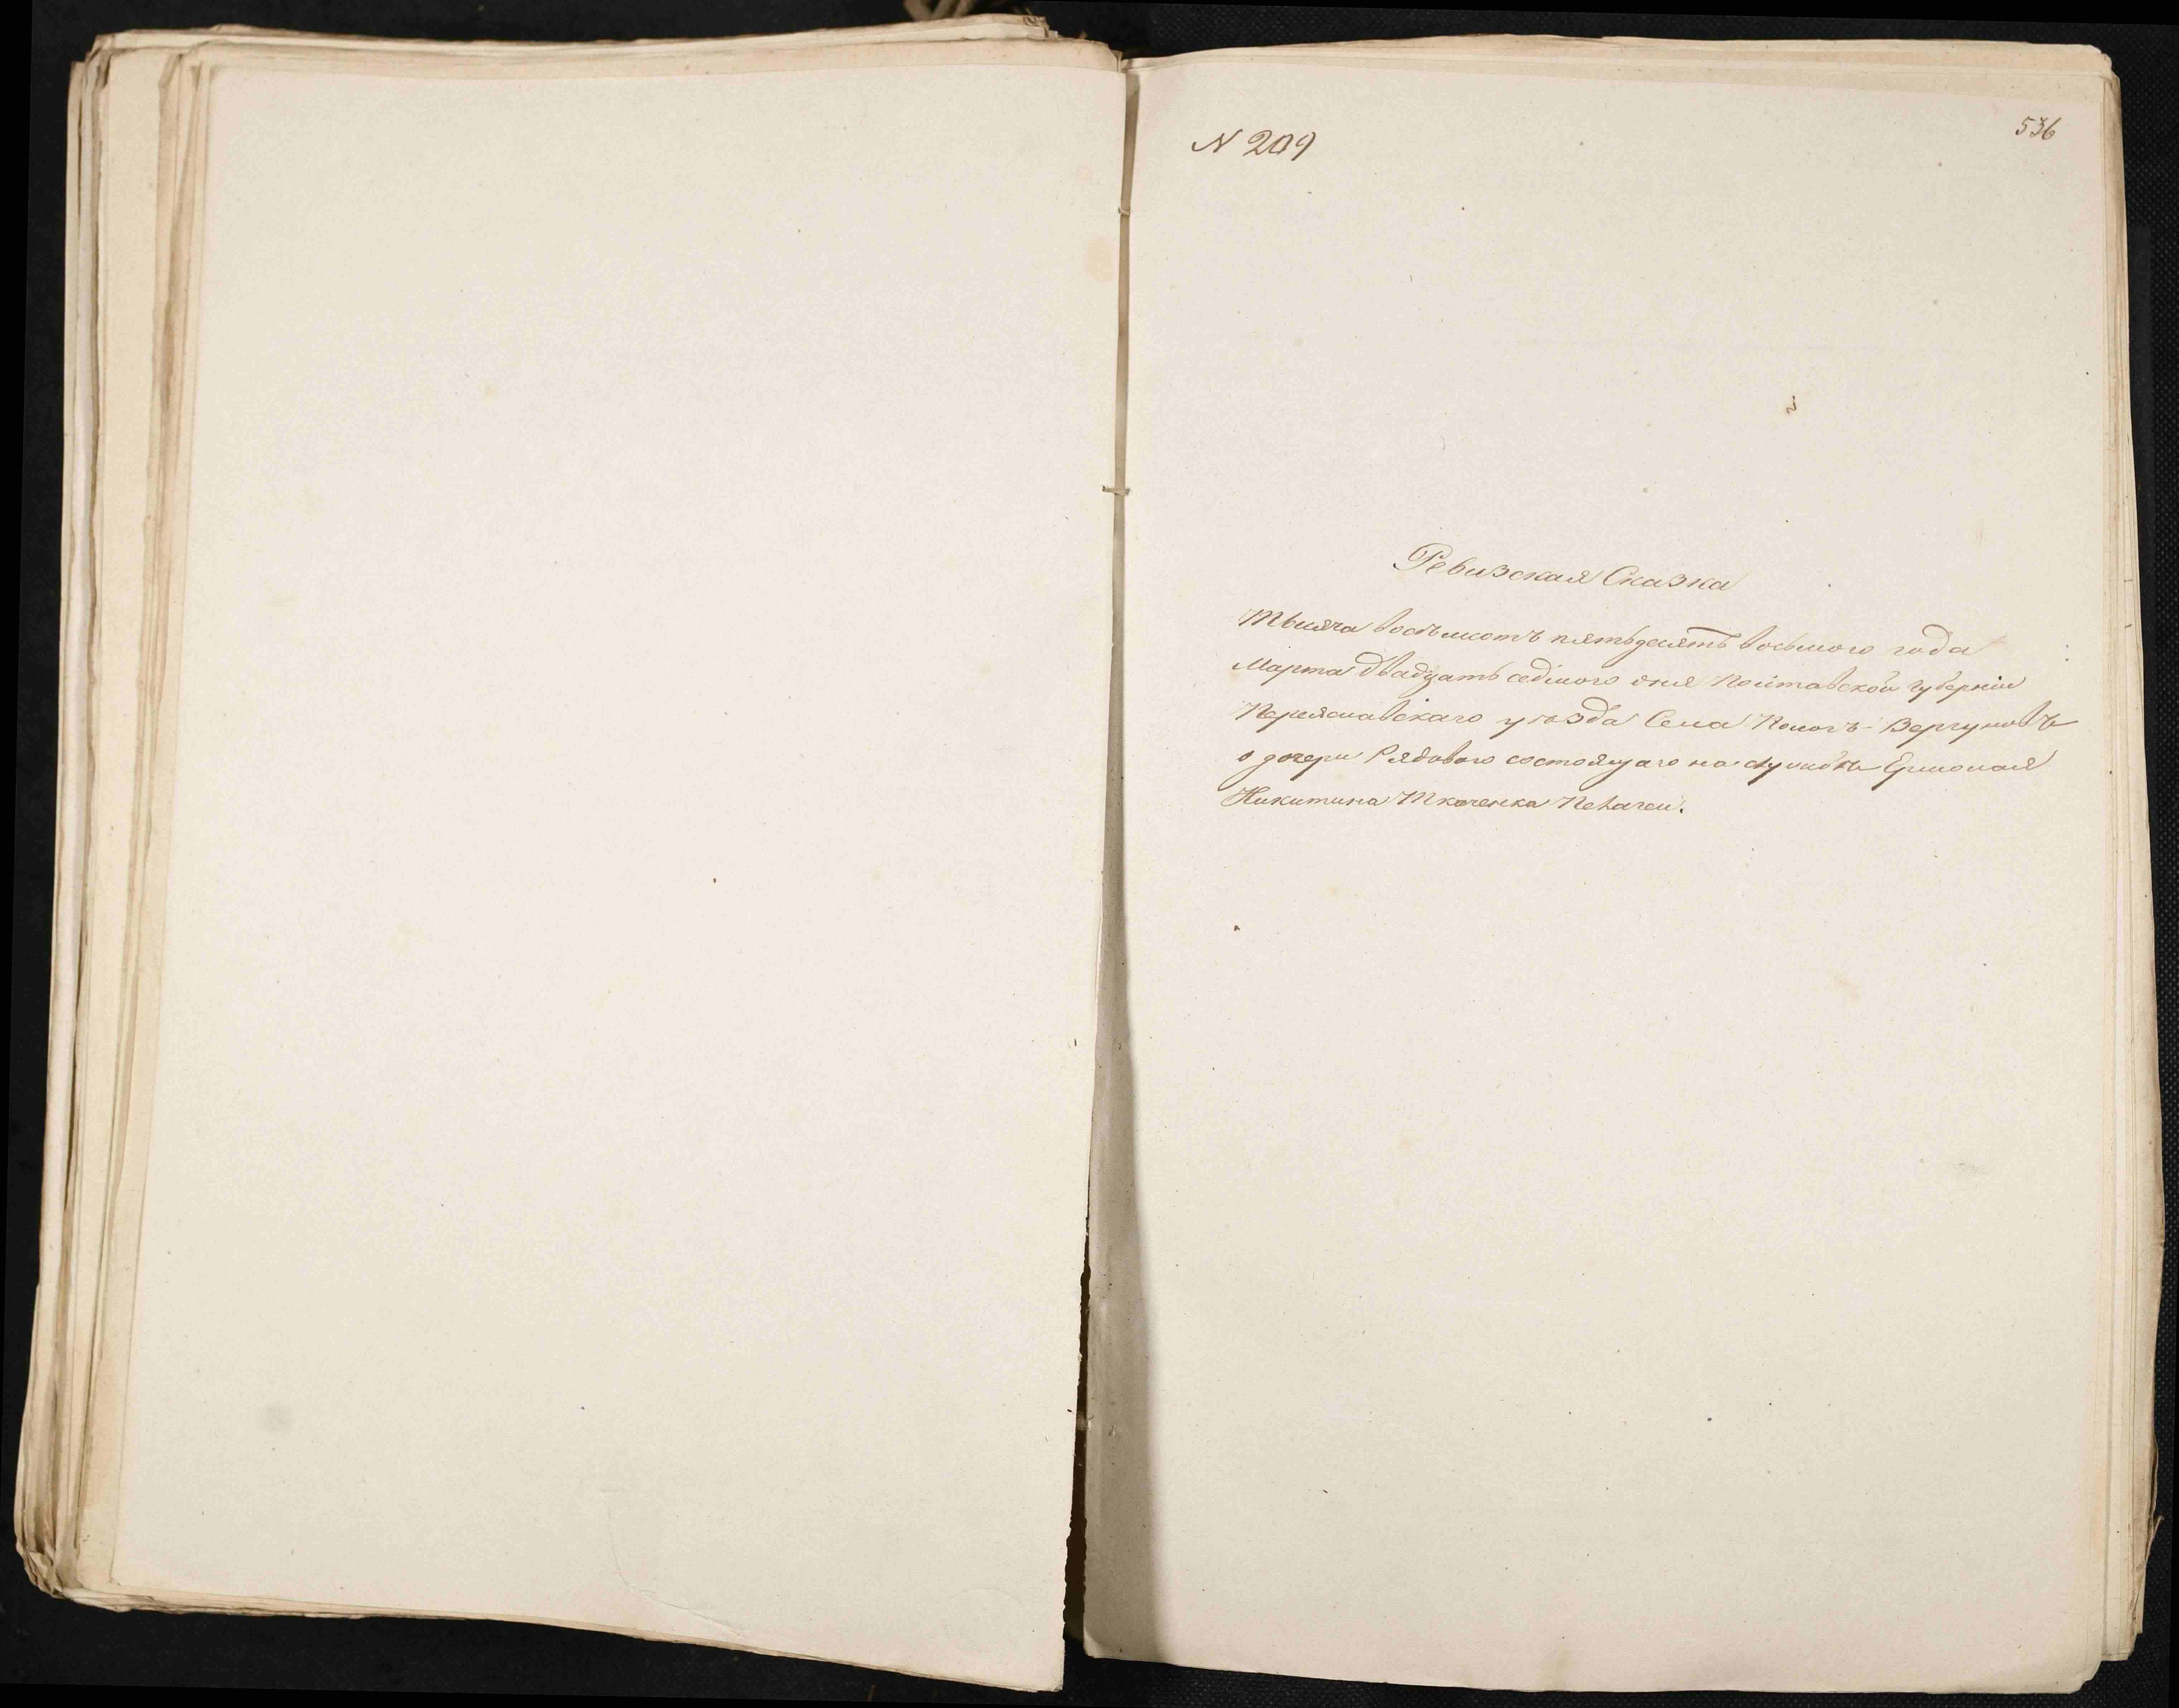 N 209
536
Ревизская Сказка
Тысяча восѣмсотъ пятьдесятъ восьмого года
Марта двадцать седмого дня Полтавской губерніи
Переяславскаго уѣзда Села Помоклъ-Вергуновъ
о дочери Рядового состоящаго на службѣ Ермолая
Никитина Ткаченка Пелагеи.